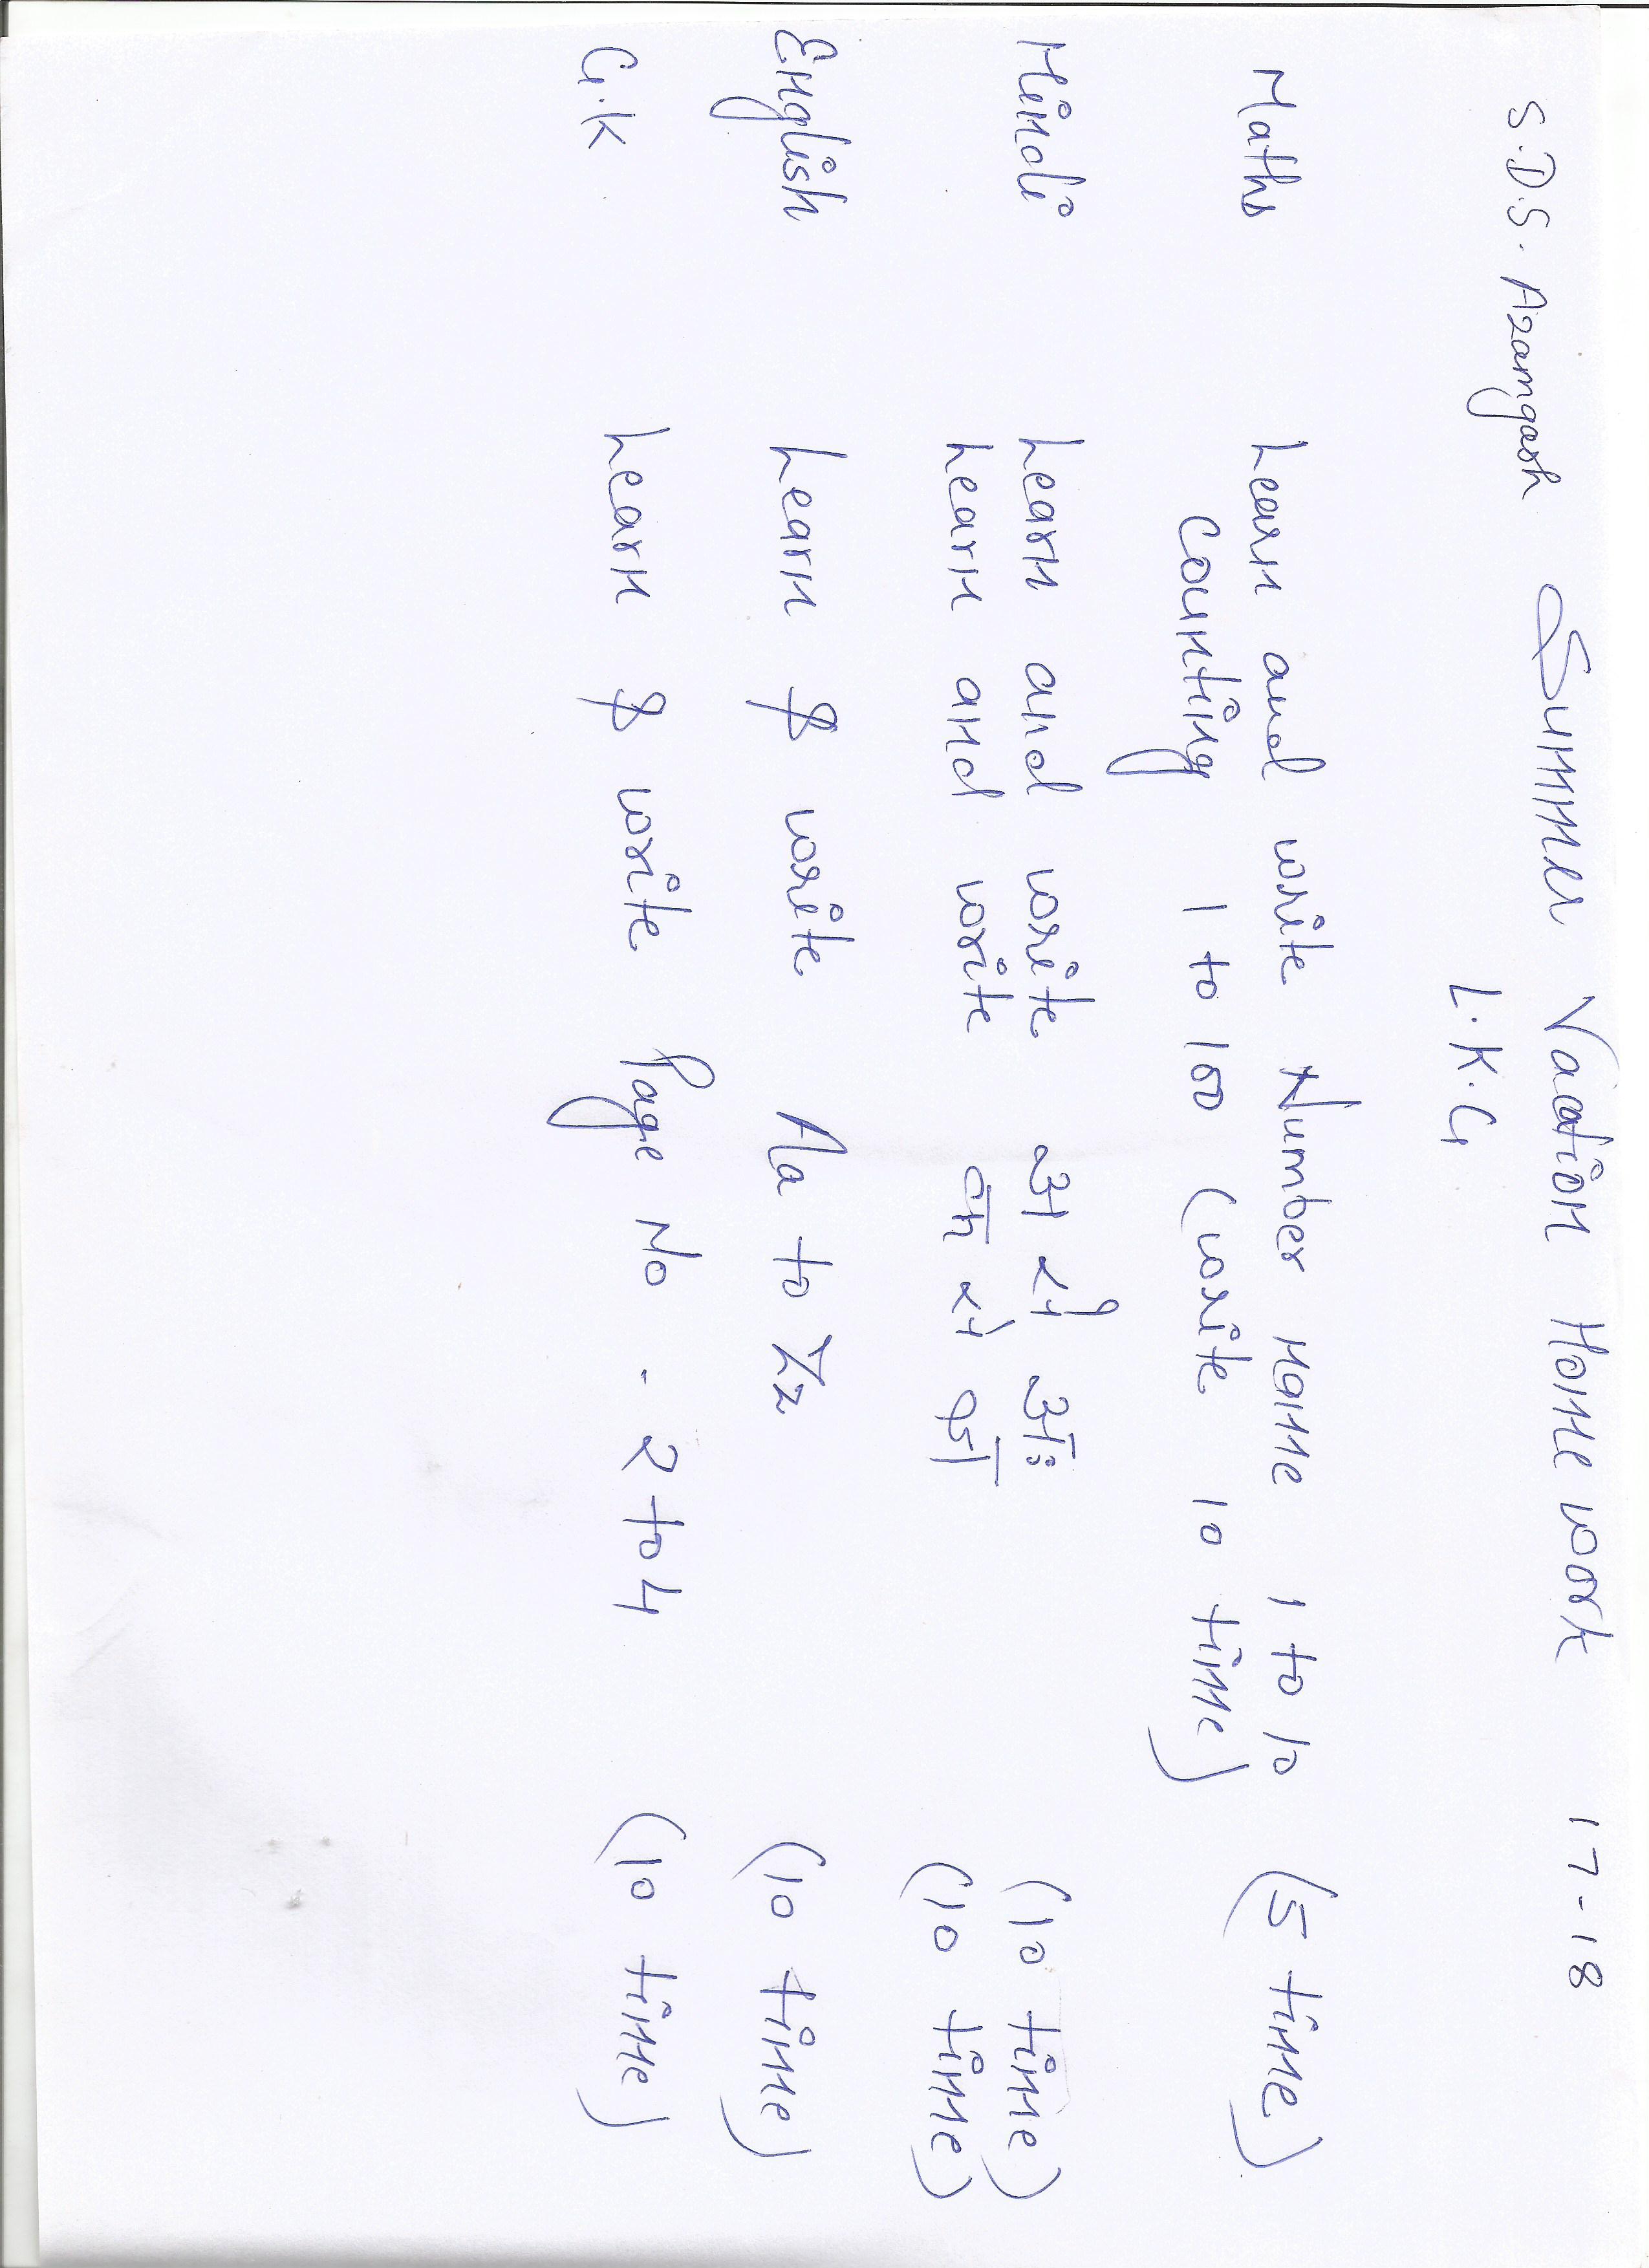 S.D.S. Azamgarh Summer Vacation Home work 17-18
L.K.G
Maths Learn and write Number name 1 to 10 (5 time)
Counting 1 to 100 (write 10 time)
Hindi Learn and write अ से अः (10 time)
Learn and write क से ज्ञ (10 time)
English Learn & write Aa to Zz (10 time)
G.K Learn & write Page No - 2 to 4 (10 time)